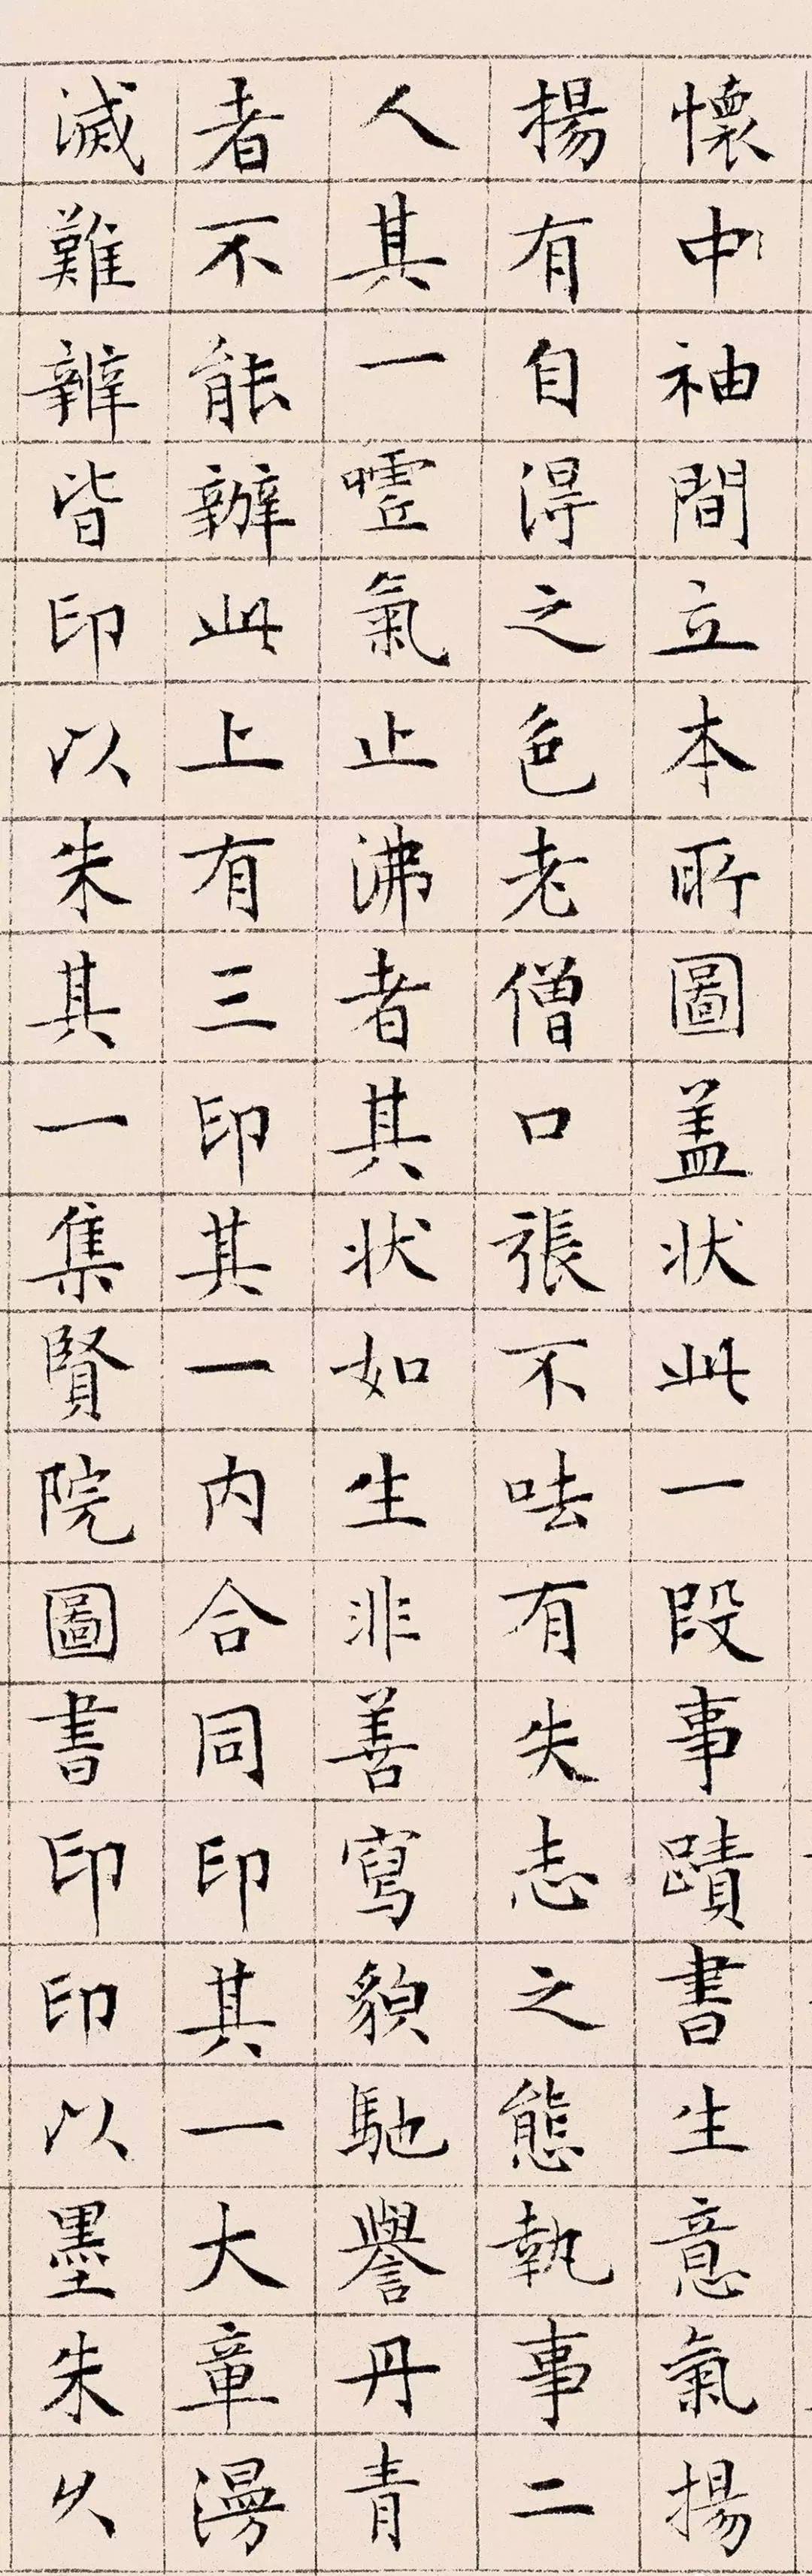 懷中袖間立本所圖盖状此一段事蹟書生意氣揚
揚有自得之色老僧口張不呿有失志之態執事二
人其一噓氣止沸者其状如生非善寫貌馳譽丹青
者不能辦此上有三印其一内合同印其一大章漫
滅難辨皆印以朱其一集賢院圖書印印以墨朱久